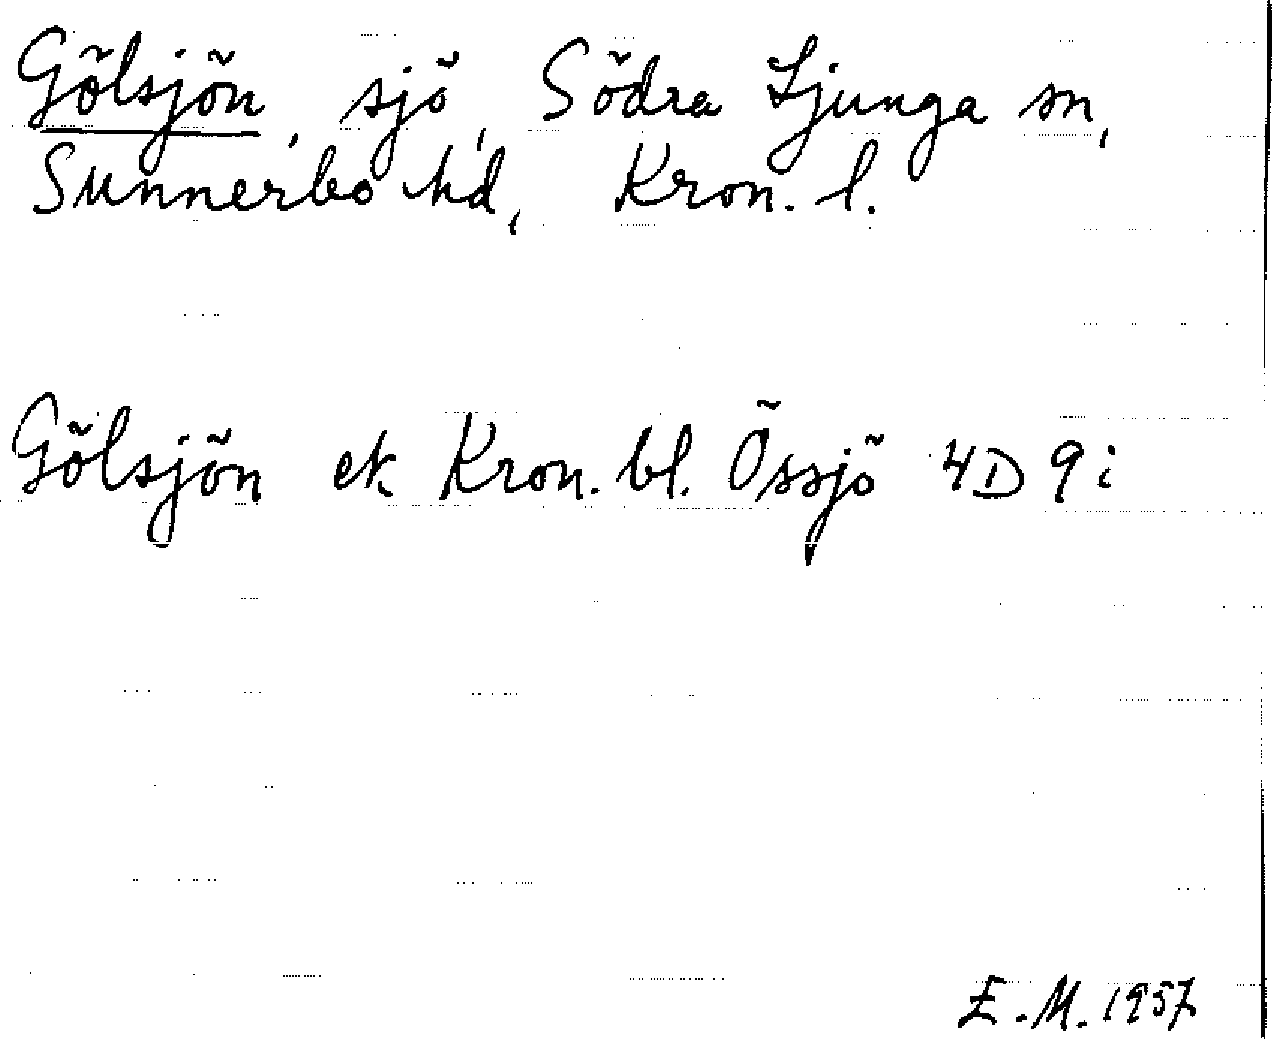 Gölsjön, sjö, Södra Ljunga sn,
Sunnerbo hd, Kron. l.
Gölsjön ek Kron. bl. Össjö 4D 9i
E.M. 1957